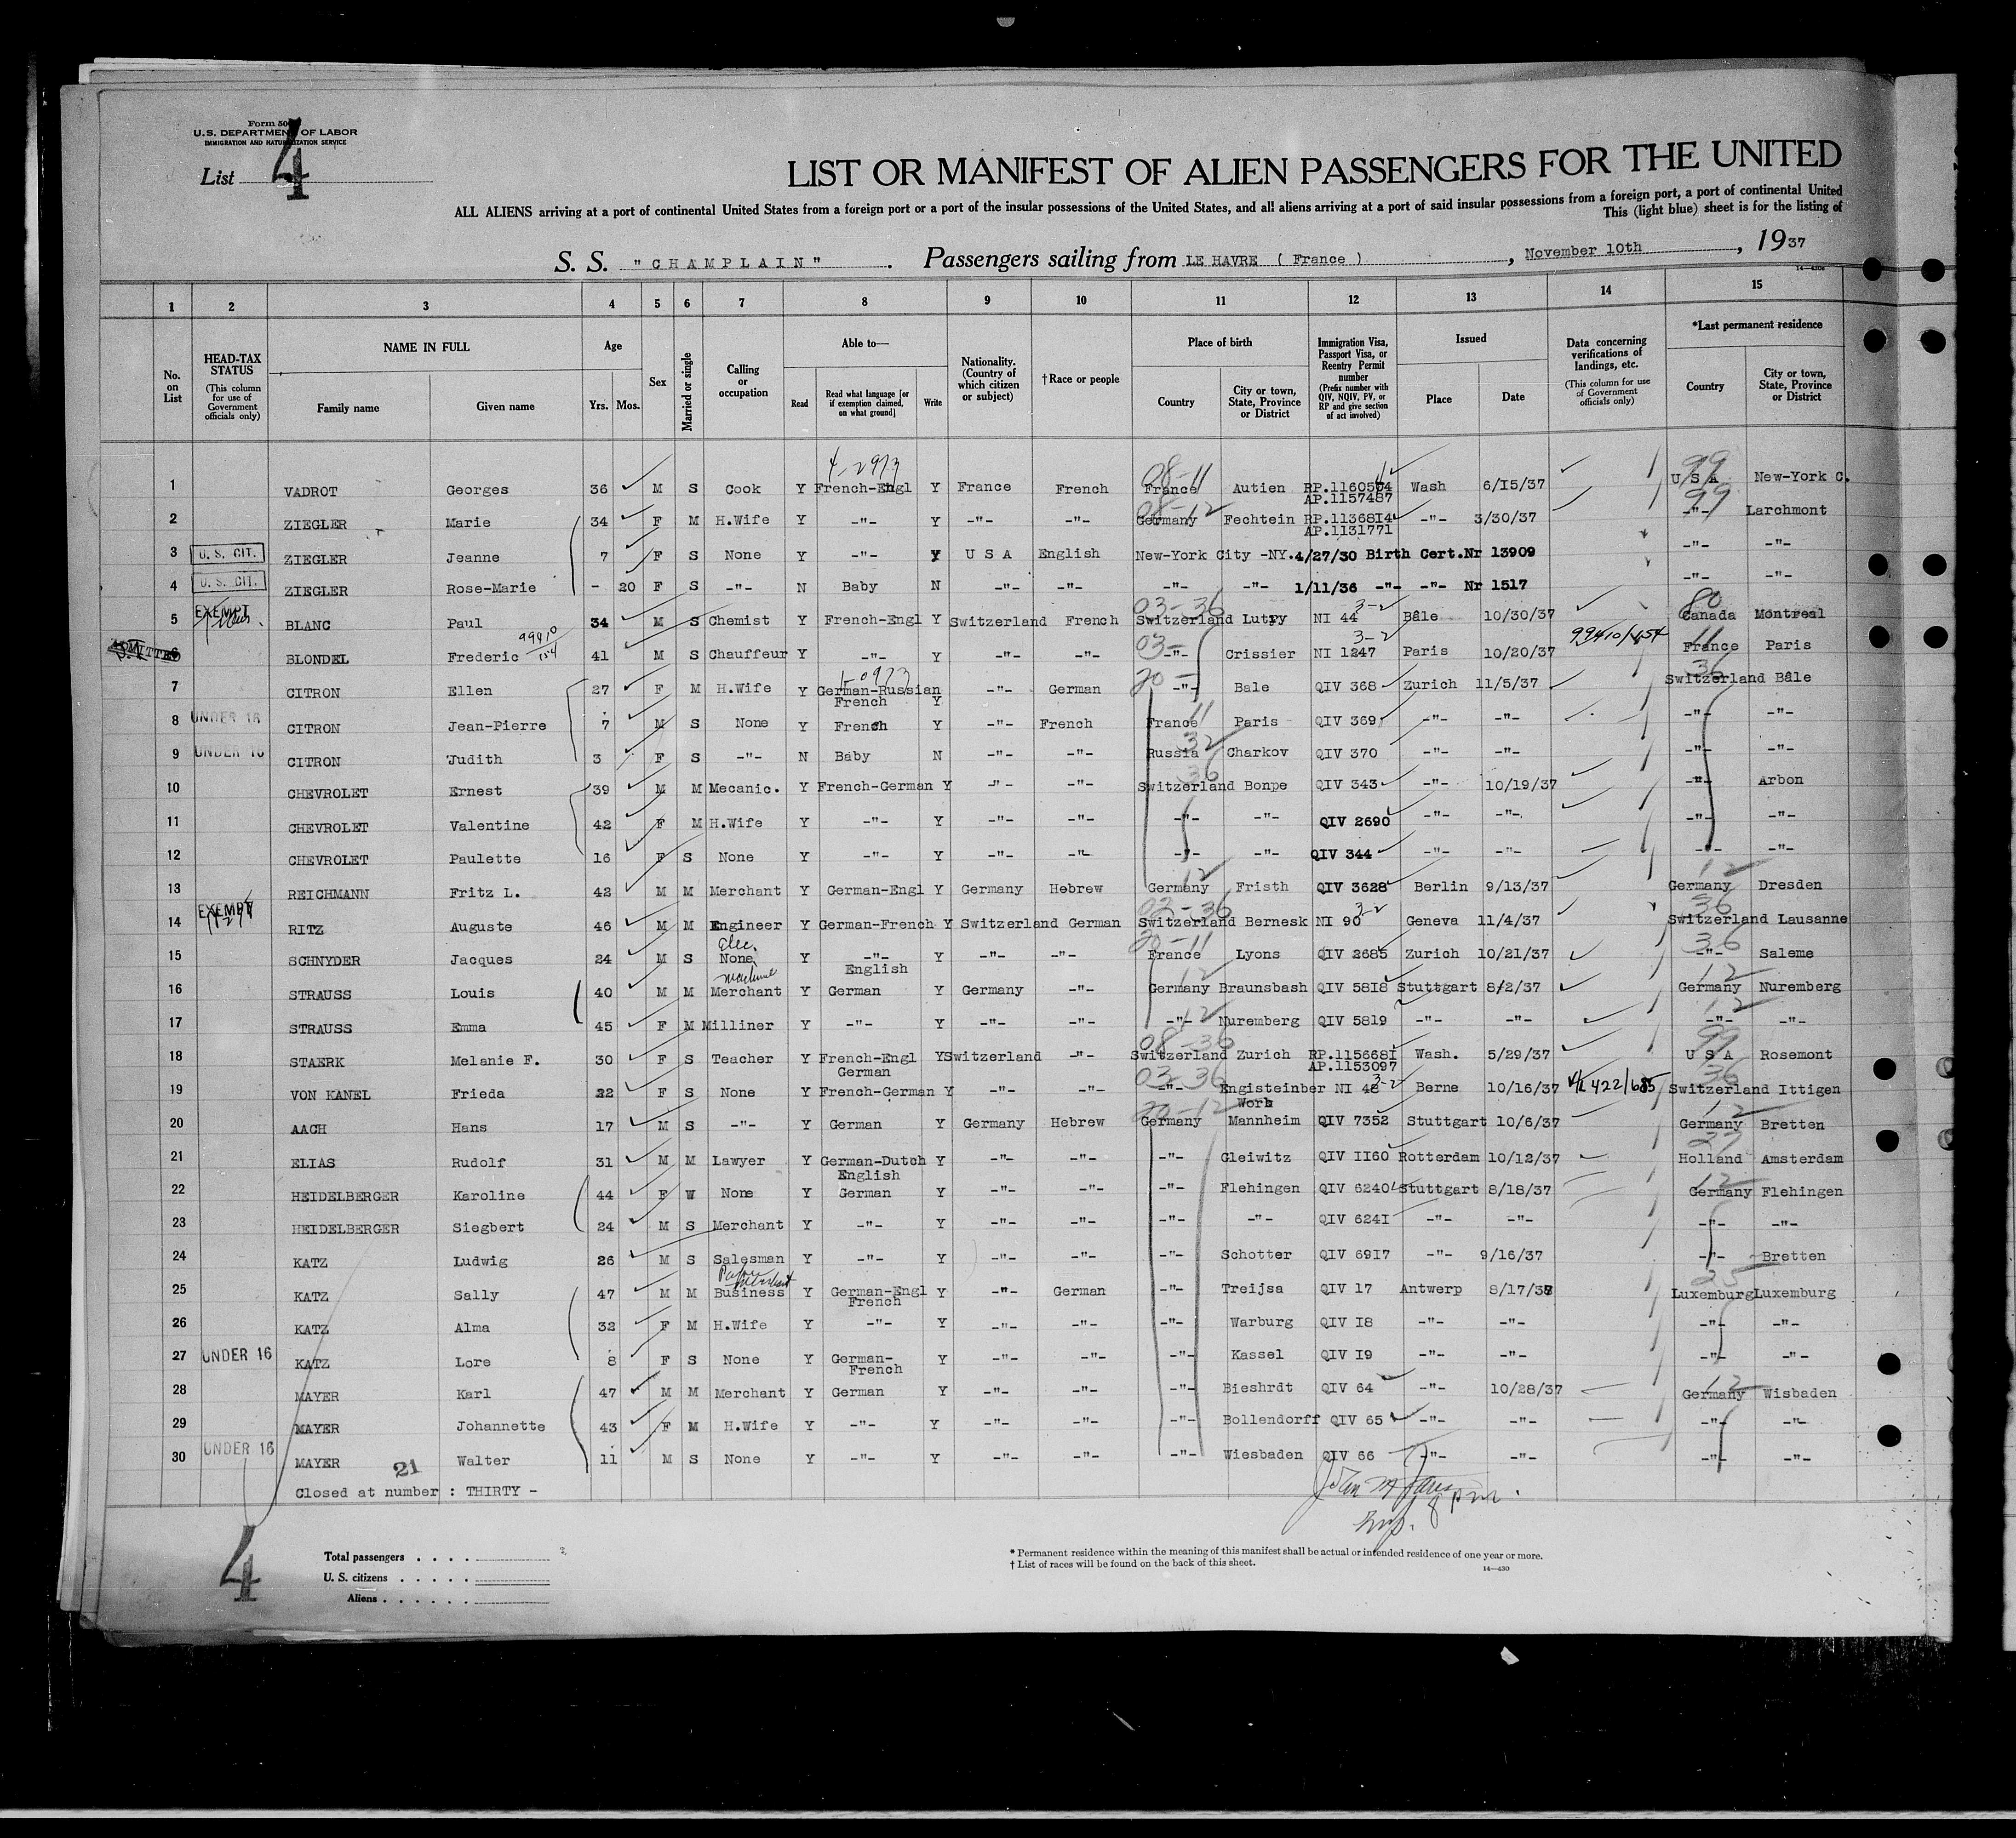 Form 50
U.S. DEPARTMENT OF LABOR
IMMIGRATION AND NATURALIZATION SERVICE
List 4
LIST OR MANIFEST OF ALIEN PASSENGERS FOR THE UNITED
ALL ALIENS arriving at a port of continental United States from a foreign port or a port of the insular possessions of the United States, and all aliens arriving at a port of said insular possessions from a foreign port, a port of continental United
This (light blue) sheet is for the listing of
S. S. "CHAMPLAIN". Passengers sailing from LE HAVRE ( France ), November 10th, 1937
1 2 3 4 5 6 7 8 9 10 11 12 13 14 15
No. on List
HEAD-TAX STATUS (This column for use of Government officials only)
NAME IN FULL Family name Given name
Age Yrs. Mos.
Sex
Married or single
Calling or occupation
Able to— Read Read what language [or if exemption claimed, on what ground] Write
Nationality. (Country of which citizen or subject)
†Race or people
Place of birth Country City or town, State, Province or District
Immigration Visa, Passport Visa, or Reentry Permit number (Prefix number with QIV, NQIV, PV, or RP and give section of act involved)
Issued Place Date
Data concerning verifications of landings, etc. (This column for use of Government officials only)
*Last permanent residence Country City or town, State, Province or District
4-2973
1 VADROT Georges 36 M S Cook Y French-Engl Y France French 08-11 France Autien RP.1160504 AP.1157487 Wash 6/15/37 99 U S A New-York C.
2 ZIEGLER Marie 34 F M H.Wife Y -"- Y -"- -"- 08-12 Germany Fechtein RP.1136814 AP.1131771 -"- 3/30/37 99 -"- Larchmont
3 U.S. CIT. ZIEGLER Jeanne 7 F S None Y -"- Y U S A English New-York City -NY. 4/27/30 Birth Cert.Nr 13909 -"- -"-
4 U.S. CIT. ZIEGLER Rose-Marie - 20 F S -"- N Baby N -"- -"- -"- -"- 1/11/36 -"- -"- Nr 1517 -"- -"-
5 EXEMPT BLANC Paul 34 M S Chemist Y French-Engl Y Switzerland French 03-36 Switzerland Lutry NI 44 3-2 Bâle 10/30/37 80 Canada Montreal
ADMITTED BLONDEL Frederic 99410/154 41 M S Chauffeur Y -"- Y -"- -"- 03- -"- Crissier NI 1247 3-2 Paris 10/20/37 99410/154 11 France Paris
7 CITRON Ellen 27 F M H.Wife Y German-Russian French Y -"- German 20- -"- Bale QIV 368 Zurich 11/5/37 36 Switzerland Bâle
8 UNDER 16 CITRON Jean-Pierre 7 M S None Y French Y -"- French 11 France Paris QIV 369 -"- -"- -"- -"-
9 UNDER 16 CITRON Judith 3 F S -"- N Baby N -"- -"- 32 Russia Charkov QIV 370 -"- -"- -"- -"-
10 CHEVROLET Ernest 39 M M Mecanic. Y French-German Y -"- -"- 36 Switzerland Bonpe QIV 343 -"- 10/19/37 -"- Arbon
11 CHEVROLET Valentine 42 F M H.Wife Y -"- Y -"- -"- -"- -"- QIV 2690 -"- -"- -"- -"-
12 CHEVROLET Paulette 16 F S None Y -"- Y -"- -"- -"- -"- QIV 344 -"- -"- -"- -"-
13 REICHMANN Fritz L. 42 M M Merchant Y German-Engl Y Germany Hebrew 12 Germany Fristh QIV 3628 Berlin 9/13/37 12 Germany Dresden
14 EXEMPT RITZ Auguste 46 M M Engineer Y German-French Y Switzerland German 02-36 Switzerland Bernesk NI 90 3-2 Geneva 11/4/37 36 Switzerland Lausanne
15 SCHNYDER Jacques 24 M S Elec. None Y -"- English Y -"- -"- 20-11 France Lyons QIV 2685 Zurich 10/21/37 36 -"- Saleme
16 STRAUSS Louis 40 M M Merchant Y German Y Germany -"- 12 Germany Braunsbash QIV 5818 Stuttgart 8/2/37 12 Germany Nuremberg
17 STRAUSS Emma 45 F M Milliner Y -"- Y -"- -"- 12 -"- Nuremberg QIV 5819 -"- -"- 12 -"- -"-
18 STAERK Melanie F. 30 F S Teacher Y French-Engl German Y Switzerland -"- 08-36 Switzerland Zurich RP.1156681 AP.1153097 Wash. 5/29/37 99 U S A Rosemont
19 VON KANEL Frieda 22 F S None Y French-German Y -"- -"- 03-36 -"- Engisteinber Worb NI 48 3-2 Berne 10/16/37 36 Switzerland Ittigen
20 AACH Hans 17 M S -"- Y German Y Germany Hebrew 20-12 Germany Mannheim QIV 7352 Stuttgart 10/6/37 12 Germany Bretten
21 ELIAS Rudolf 31 M M Lawyer Y German-Dutch English Y -"- -"- -"- Gleiwitz QIV 1160 Rotterdam 10/12/37 27 Holland Amsterdam
22 HEIDELBERGER Karoline 44 F W None Y German Y -"- -"- -"- Flehingen QIV 6240 Stuttgart 8/18/37 12 Germany Flehingen
23 HEIDELBERGER Siegbert 24 M S Merchant Y -"- Y -"- -"- -"- -"- QIV 6241 -"- -"- -"- -"-
24 KATZ Ludwig 26 M S Salesman Y -"- Y -"- -"- Schotter QIV 6917 -"- 9/16/37 -"- Bretten
25 KATZ Sally 47 M M Business Y German-Engl French Y -"- German -"- Treijsa QIV 17 Antwerp 8/17/37 25 Luxemburg Luxemburg
26 KATZ Alma 32 F M H.Wife Y -"- Y -"- -"- -"- Warburg QIV 18 -"- -"- -"- -"-
27 UNDER 16 KATZ Lore 8 F S None Y German-French Y -"- -"- -"- Kassel QIV 19 -"- -"- -"- -"-
28 MAYER Karl 47 M M Merchant Y German Y -"- -"- -"- Bieshrdt QIV 64 -"- 10/28/37 12 Germany Wisbaden
29 MAYER Johannette 43 F M H.Wife Y -"- Y -"- -"- -"- Bollendorff QIV 65 -"- -"- -"- -"-
30 UNDER 16 MAYER Walter 11 M S None Y -"- Y -"- -"- -"- Wiesbaden QIV 66 -"- -"- -"- -"-
21
Closed at number : THIRTY -
4
Total passengers . . . .
U. S. citizens . . . . .
Aliens . . . . . .
* Permanent residence within the meaning of this manifest shall be actual or intended residence of one year or more.
† List of races will be found on the back of this sheet.
14—430